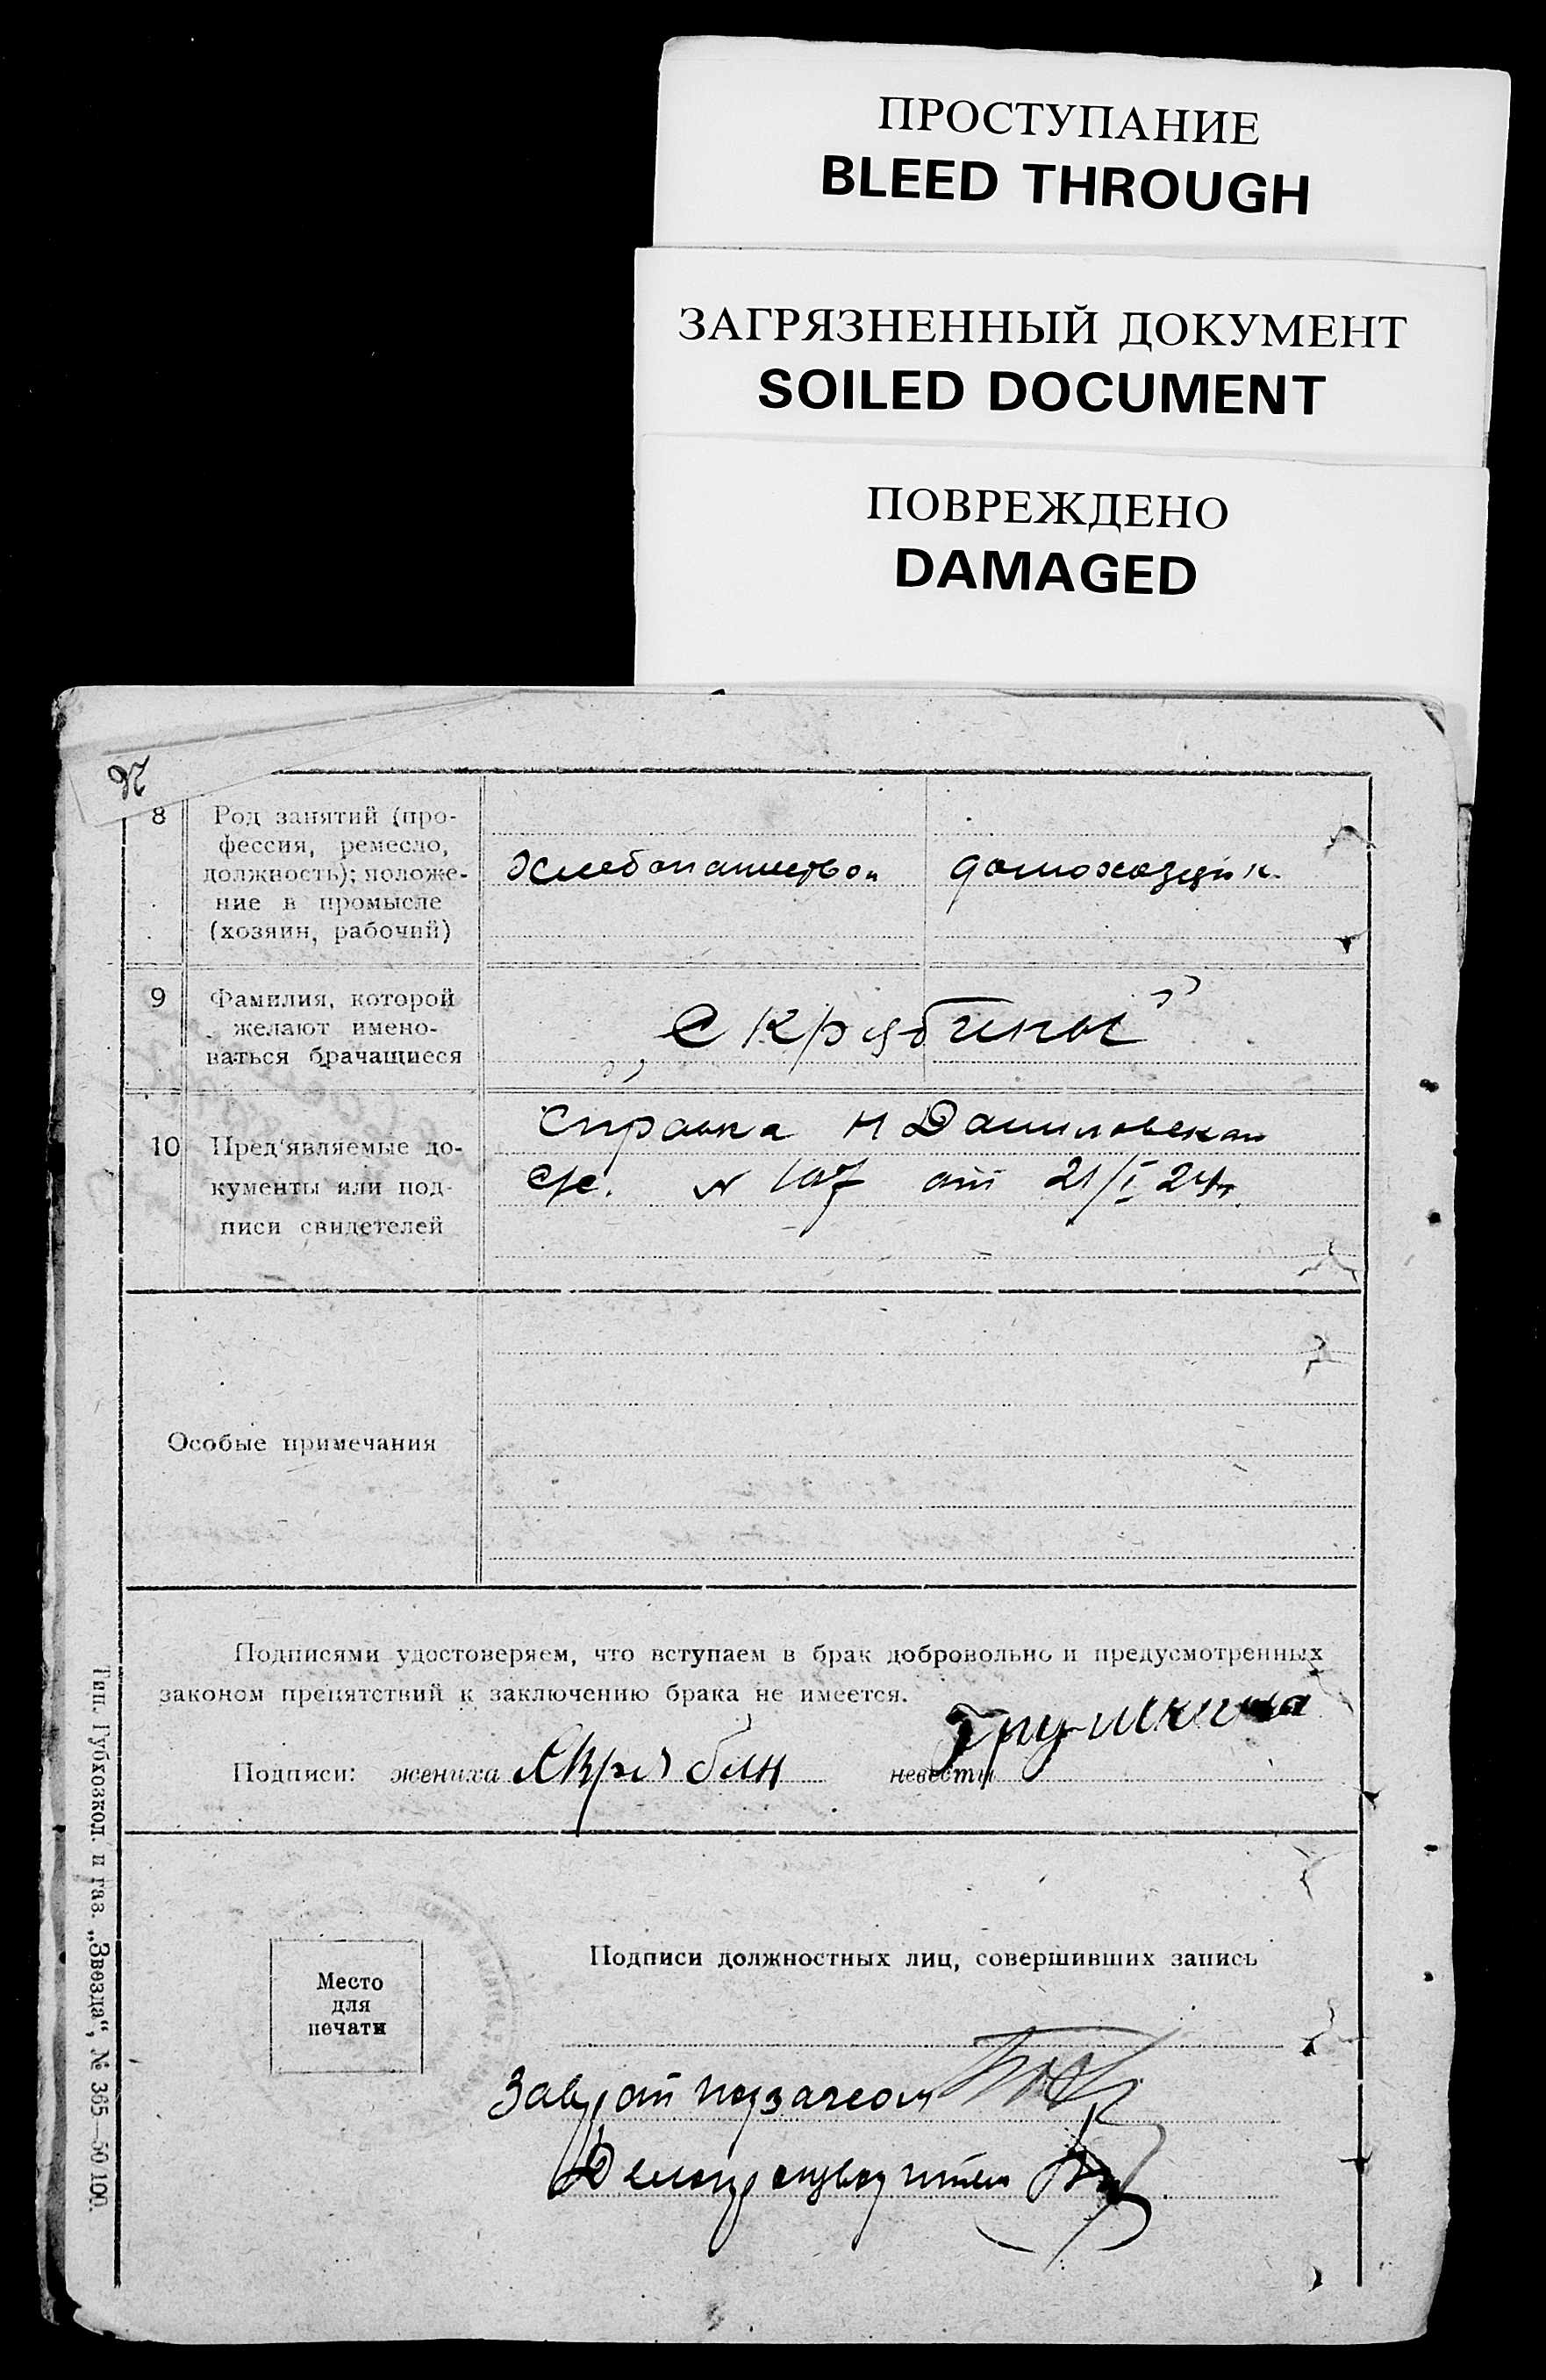 ПРОСТУПАНИЕ
BLEED THROUGH
ЗАГРЯЗНЕННЫЙ ДОКУМЕНТ
SOILED DOCUMENT
ПОВРЕЖДЕНО
DAMAGED
8 Род занятий (про-
фессия, ремесло,
должность); положе-
ние в промысле
(хозяин, рабочий)
Хлебопашество
домохозяйк.
9 Фамилия, которой
желают имено-
ваться брачащиеся
„Скрябины"
10 Пред'являемые до-
кументы или под-
писи свидетелей
Справка Н Даниловскаго
с/с. № 107 от 21/I 24г.
Особые примечания
Подписями удостоверяем, что вступаем в брак добровольно и предусмотренных
законом препятствий к заключению брака не имеется.
Подписи: жениха Скрябин невесты Трушкина
Место
для
печати
Подписи должностных лиц, совершивших запись
Зав. подзагсом
Делопроизводитель
Тип. Губхозкол. и газ. „Звезда", № 365—50 100.